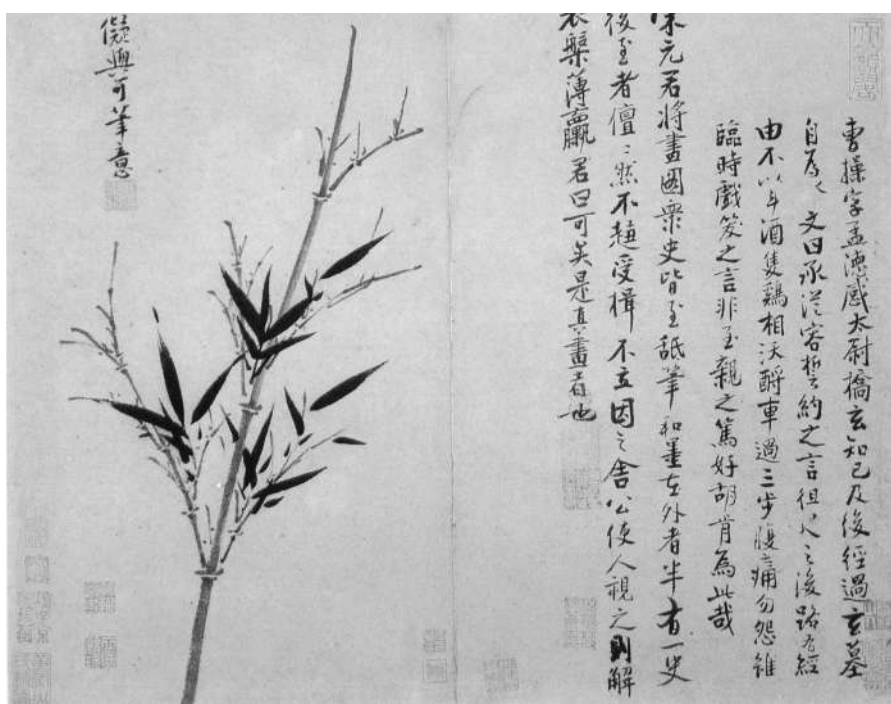 曹操字孟德感太尉橋玄知已及後經過玄墓
自為之文曰承從容誓約之言徂之後路有經
由不以斗酒隻鷄相沃酹車過三步腹痛勿怨雖
臨時戲笑之言非至親之篤好胡肯為此哉
宋元君將畫圖衆史皆至舐筆和墨在外者半有一史
後至者儃〻然不趨受揖不立因之舍公使人視之則解
衣槃薄臝君曰可矣是真畫者也
儗與可筆意